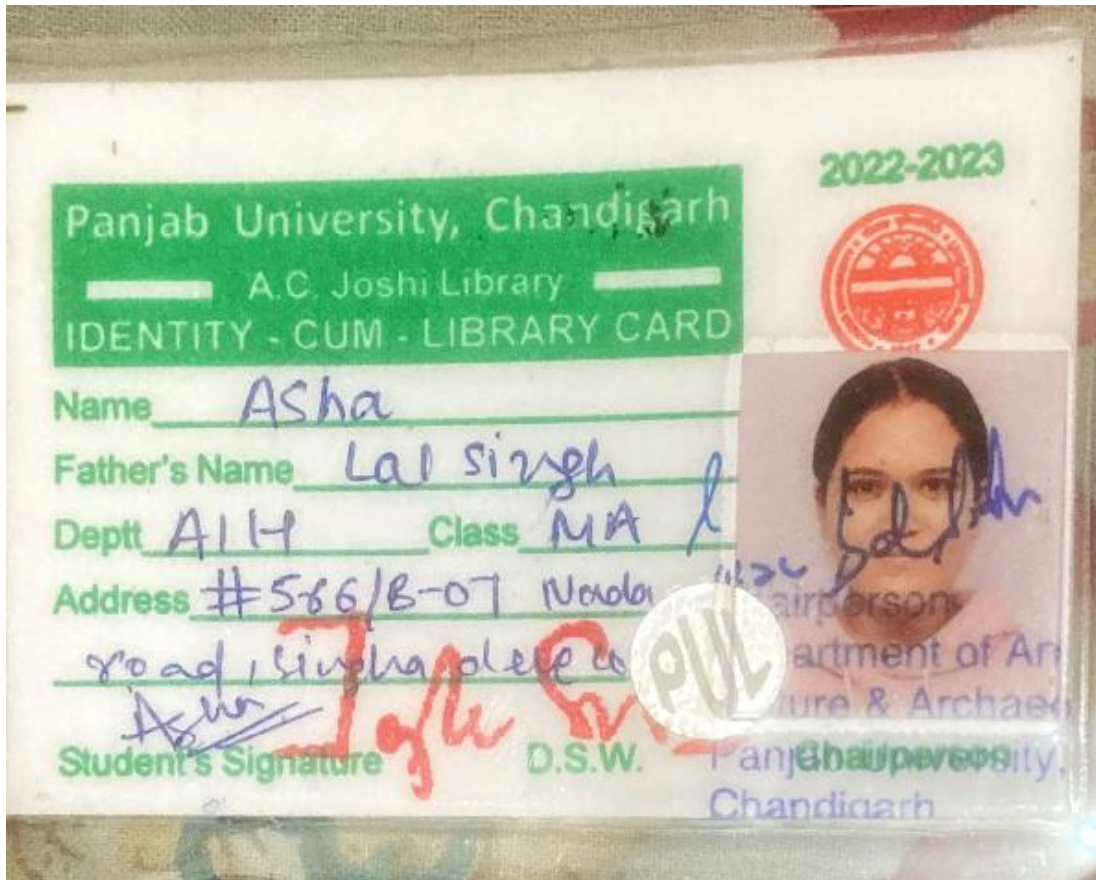 2022-2023
Panjab University, Chandigarh
A.C. Joshi Library
IDENTITY - CUM - LIBRARY CARD
Name Asha
Father's Name Lal Singh
Deptt AIH Class MA
Address #566/B-07 Nada
road, singha devi
Asha
PUL
Student's Signature D.S.W. Chairperson
airperson
artment of An
ture & Archaeo
Panjab University,
Chandigarh